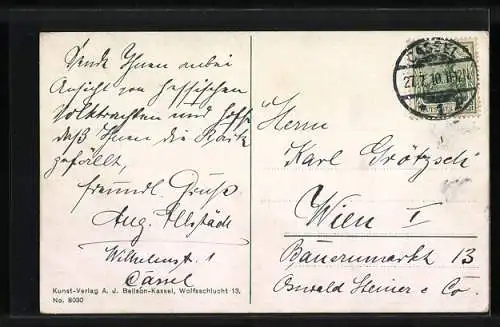 Sende Ihnen anbei
Ansicht von hessischen
Volktrachten und hoffe
daß Ihnen die Karte
gefällt,
freundl. Grüße
Aug.
Wilhelmst. 1
Cassel
Kunst-Verlag A. J. Bellson-Kassel, Wolfsschlucht 13,
No. 8030
CASSEL
27.7.10
* 1
Herrn
Karl Grötzsch
Wien I
Bauernmarkt 13
Oswald Steiner & Co.